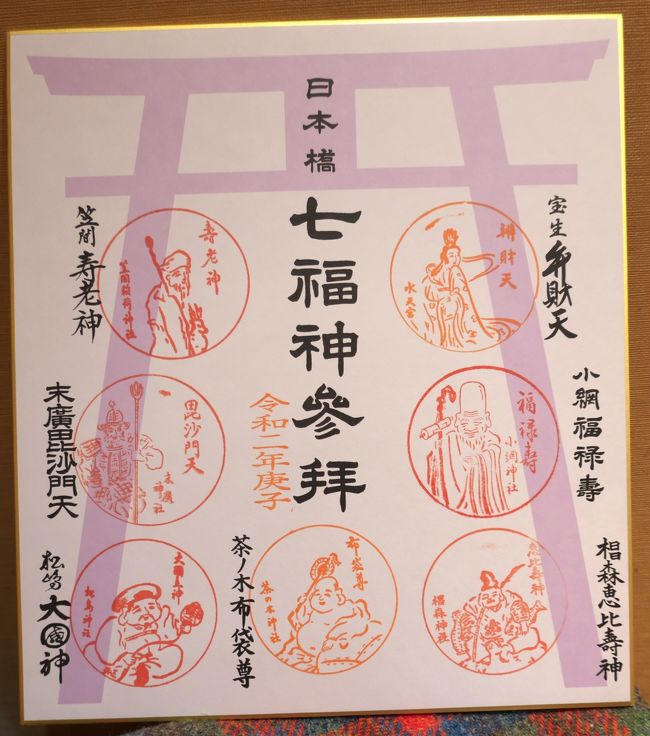 日本橋
七福神參拜
令和二年庚子
宝生弁財天
辨財天
水天宮
小網福禄壽
福禄寿
小網神社
椙森恵比壽神
恵比寿神
椙森神社
茶ノ木布袋尊
布袋尊
茶の木神社
笠間寿老神
寿老神
笠間稲荷神社
末廣毘沙門天
毘沙門天
末廣神社
松島大國神
大國神
松島神社